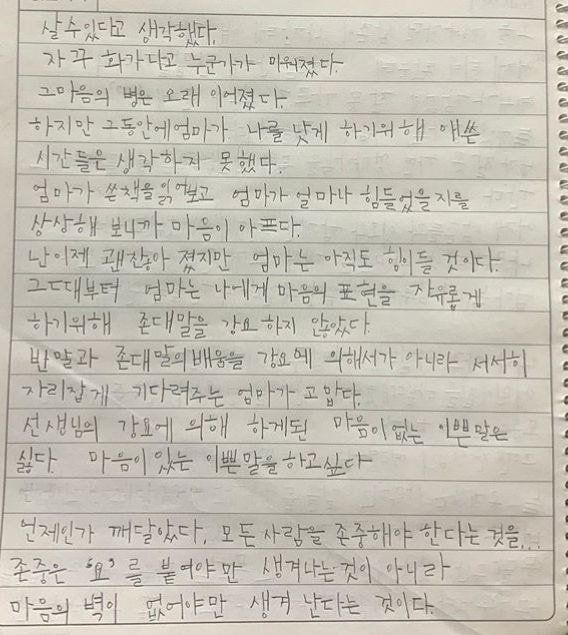 살수있다고 생각했다.
자꾸 화가나고 누군가가 미워졌다.
그마음의 병은 오래 이어졌다.
하지만 그동안에엄마가 나를 낫게 하기위해 애쓴
시간들은 생각하지 못했다.
엄마가 쓴책을읽어보고 엄마가 얼마나 힘들었을지를
상상해 보니까 마음이 아프다.
난이제 괜찮아 졌지만 엄마는 아직도 힘이들 것이다.
그때부터 엄마는 나에게 마음의 표현을 자유롭게
하기위해 존대말을 강요하지 않았다.
반말과 존대말의배움을 강요에 의해서가 아니라 서서히
자리잡게 기다려주는 엄마가 고맙다.
선생님의 강요에 의해 하게된 마음이없는 이쁜말은
싫다. 마음이 있는 이쁜말을하고싶다
언제인가 깨달았다. 모든 사람을 존중해야 한다는 것을...
존중은 '요'를 붙여야만 생겨나는것이 아니라
마음의 벽이 없어야만 생겨 난다는 것이다.